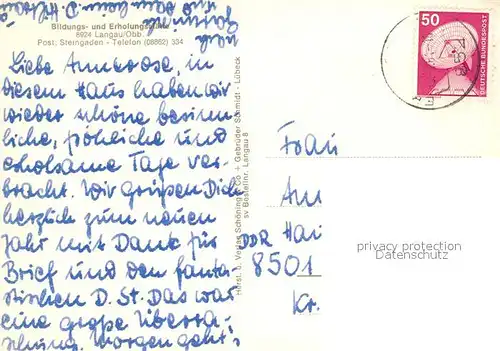 Bildungs- und Erholungsstätte
8924 Langau/Obb.
Post: Steingaden - Telefon (08862) 334
Liebe Annerose, in
diesem Haus haben wir
wieder schöne besinn
liche, fröhliche und
erholsame Tage ver-
bracht. Wir grüßen Dich
herzlich zum neuen
Jahr mit Dank für
Brief und den fanta-
stischen D. St. Das war
eine große Überra-
schung. Morgen geht's
nach
Herst. u. Verlag Schöning & Co + Gebrüder Schmidt - Lübeck
sv Bestellnr. Langau 8
50
DEUTSCHE BUNDESPOST
Frau
An
DDR Hai
8501
Kr.
privacy protection
Datenschutz